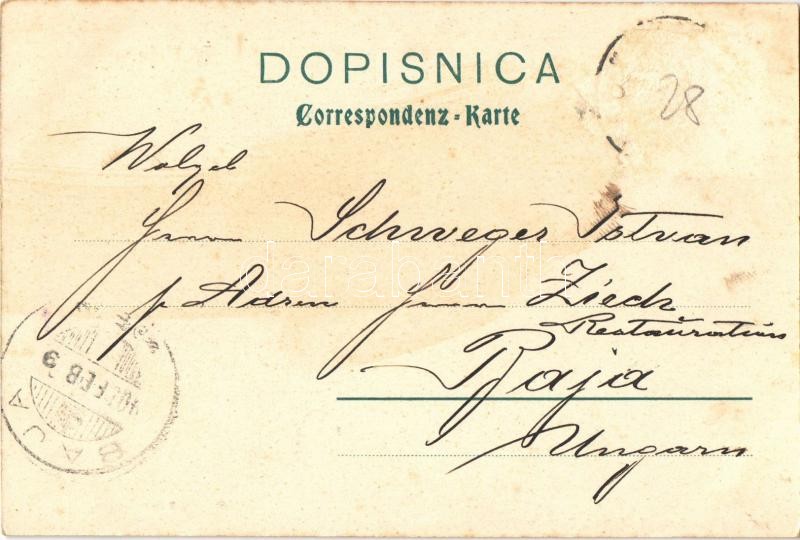 DOPISNICA
Correspondenz-Karte
28
Wolgeb
Herrn Schweger Istvan
p Adren Herrn Ziech
Restauration
Baja
Ungarn
BAJA
FEB 9
darabanth